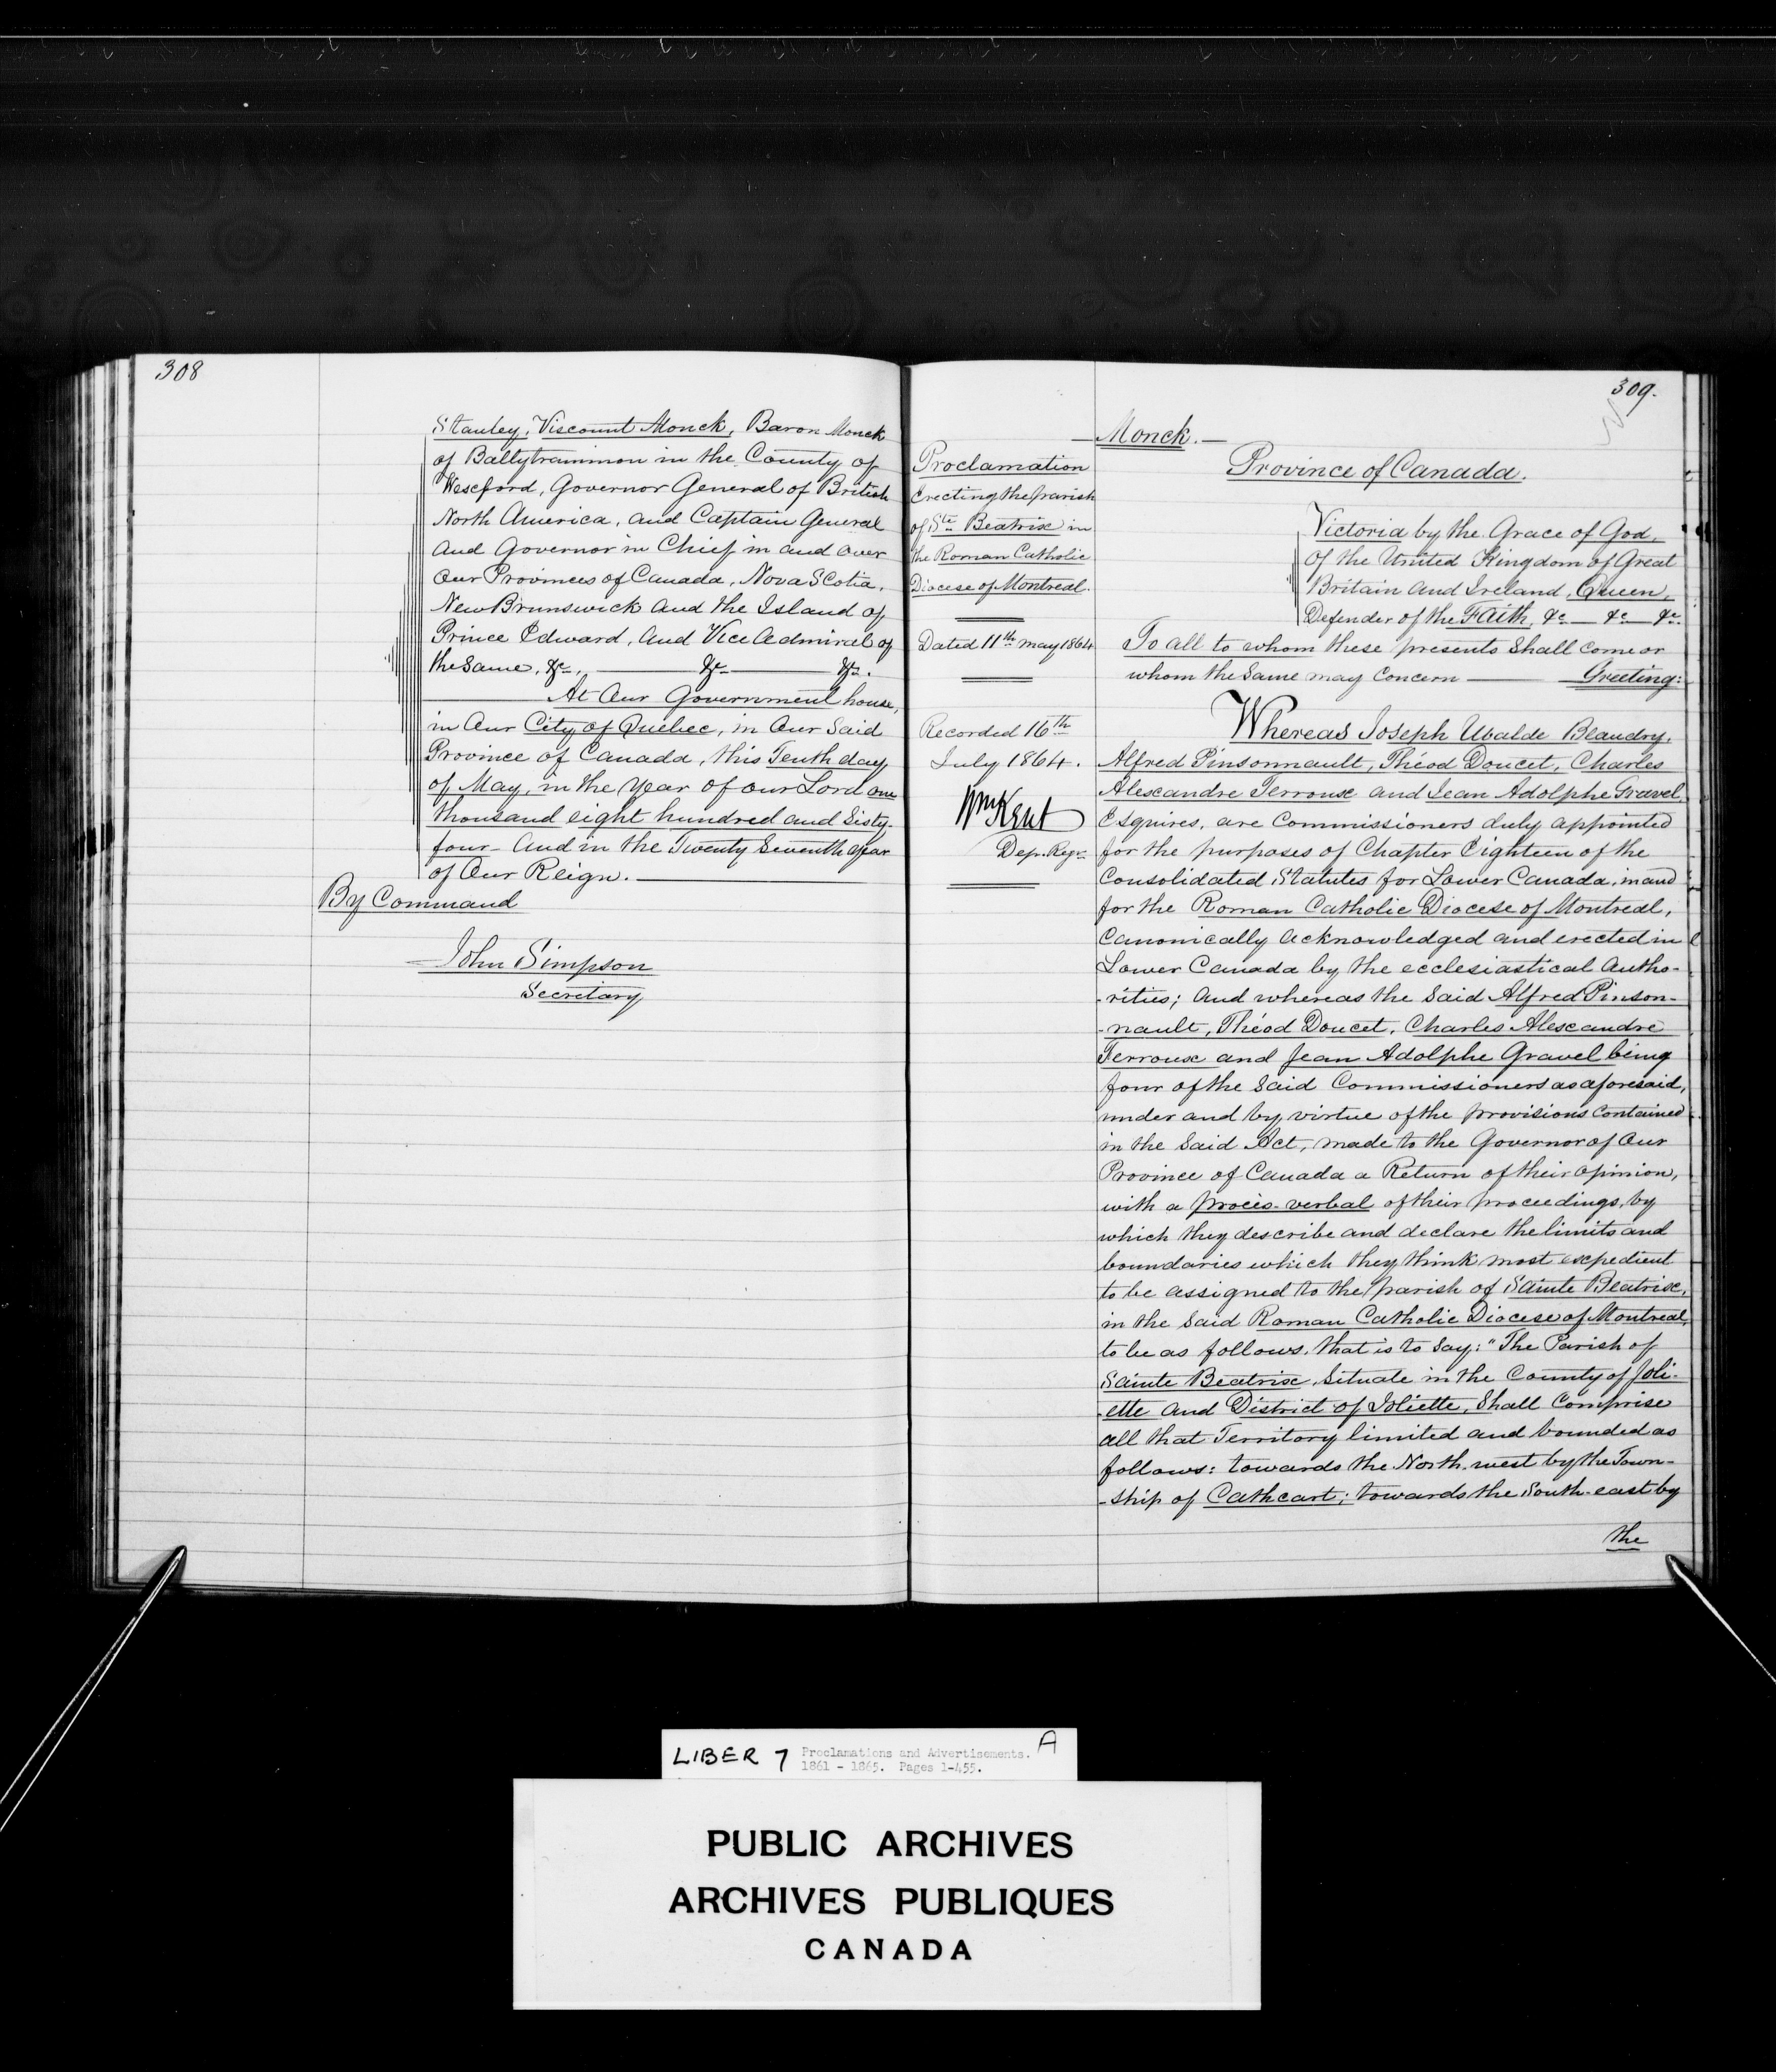 308
Stanley, Viscount Monck, Baron Monck
of Ballytrammon in the County of
Wexford, Governor General of British
North America, and Captain General
and Governor in Chief in and over
Our Provinces of Canada, Nova Scotia,
New Brunswick and the Island of
Prince Edward, and Vice Admiral of
the Same, &c., &c &c.
At Our Government house,
in Our City of Quebec, in Our Said
Province of Canada, this Tenth day
of May, in the year of our Lord one
thousand eight hundred and Sixty-
four and in the Twenty Seventh year
of Our Reign.
By Command
John Simpson
Secretary
309.
Proclamation
Erecting the parish
of Ste Beatrix in
the Roman Catholic
Diocese of Montreal.
Dated 11th May 1864
Recorded 16th
July 1864.
Wm Kent
Dep. Regr.
Monck.
Province of Canada.
Victoria by the Grace of God,
of the United Kingdom of Great
Britain and Ireland, Queen,
Defender of the Faith, &c &c &c.
To all to whom these presents Shall come or
whom the Same may Concern Greeting:
Whereas Joseph Ubalde Beaudry,
Alfred Pinsonnault, Théod Doucet, Charles
Alexandre Terroux and Jean Adolphe Gravel,
Esquires, are Commissioners duly appointed
for the purposes of Chapter Eighteen of the
Consolidated Statutes for Lower Canada, in and
for the Roman Catholic Diocese of Montreal,
Canonically acknowledged and erected in
Lower Canada by the ecclesiastical Autho-
-rities; and whereas the Said Alfred Pinson-
-nault, Théod Doucet, Charles Alexandre
Terroux and Jean Adolphe Gravel being
four of the Said Commissioners as aforesaid,
under and by virtue of the provisions Contained
in the Said Act, made to the Governor of Our
Province of Canada a Return of their opinion,
with a procès-verbal of their proceedings, by
which they describe and declare the limits and
boundaries which they think most expedient
to be assigned to the parish of Sainte Beatrixe,
in the Said Roman Catholic Diocese of Montreal,
to be as follows, that is to Say: "The Parish of
Sainte Beatrixe, Situate in the County of Joli-
-ette and District of Joliette, Shall Comprise
all that Territory limited and bounded as
follows: towards the North-west by the Town-
-ship of Cathcart; towards the South-east by
the
LIBER 7 Proclamations and Advertisements. A
1861 - 1865. Pages 1-455.
PUBLIC ARCHIVES
ARCHIVES PUBLIQUES
CANADA